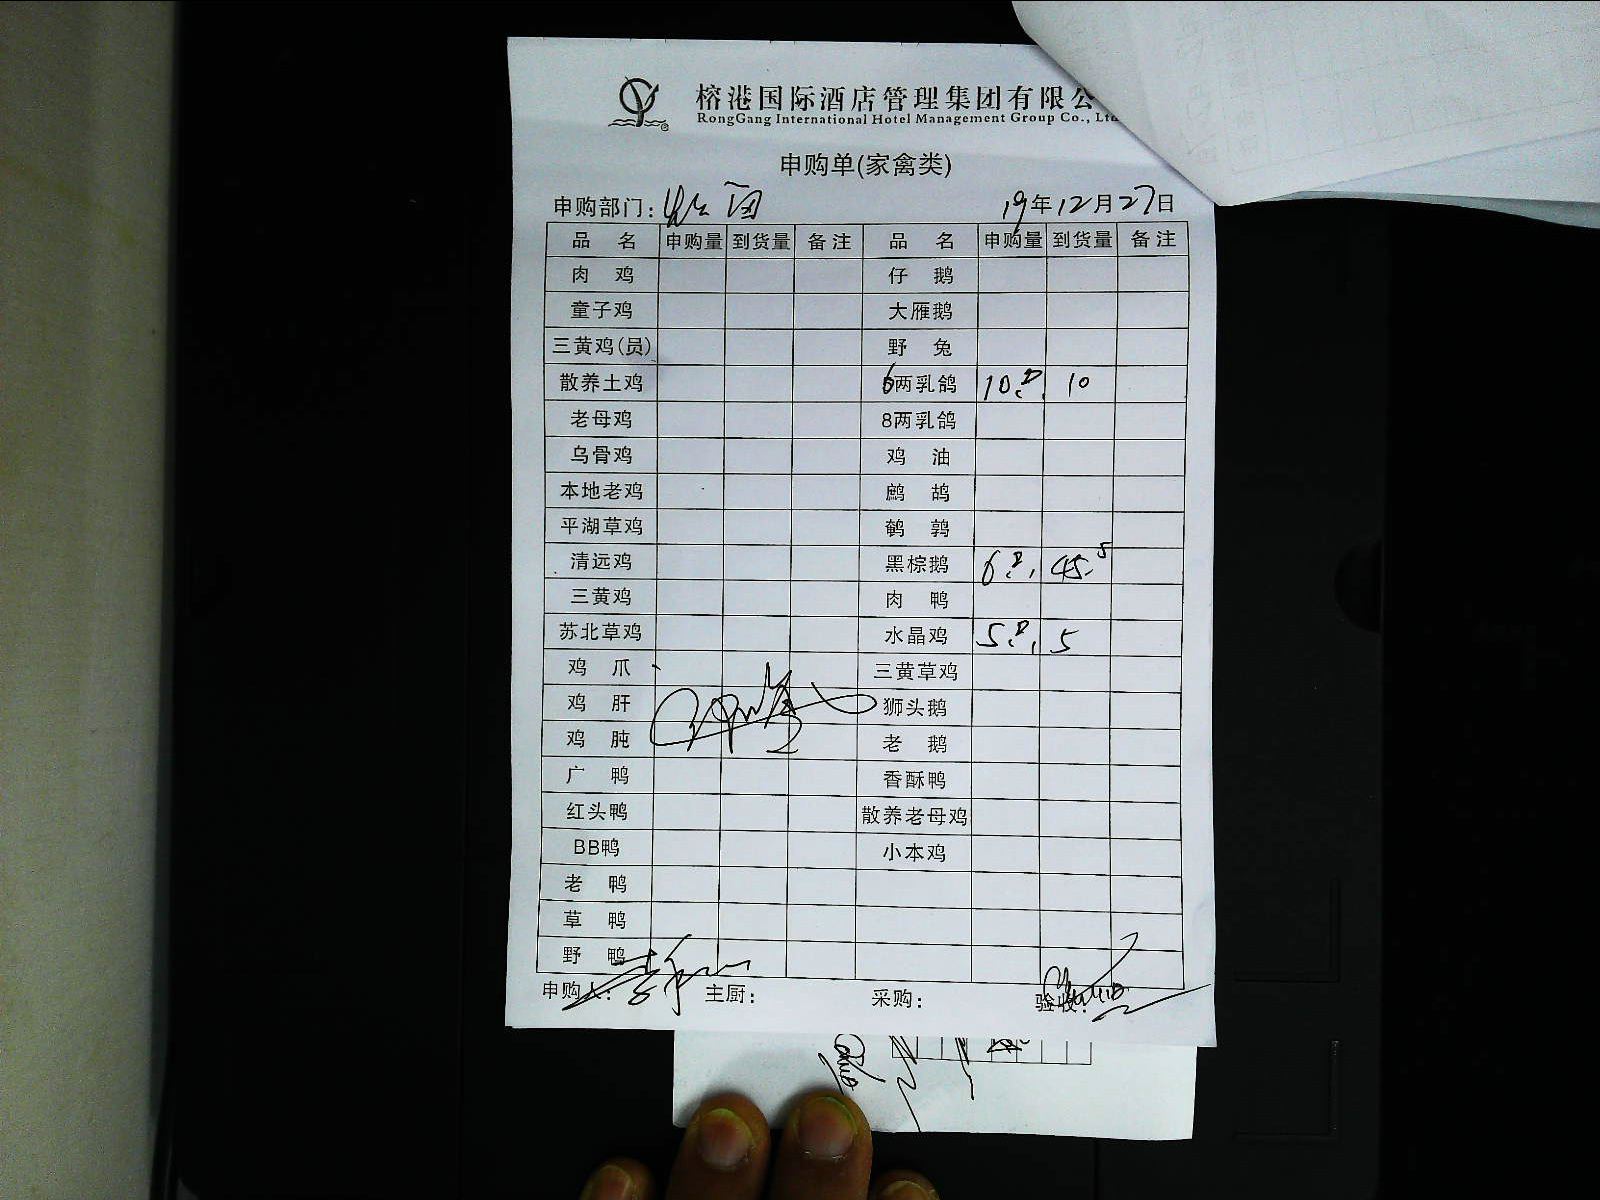 榕港国际酒店管理集团有限公
RongGang International Hotel Management Group Co., Ltd
申购单(家禽类)
申购部门: 19年12月27日
品名 申购量 到货量 备注 品名 申购量 到货量 备注
肉鸡 仔鹅
童子鸡 大雁鹅
三黄鸡(员) 野兔
散养土鸡 6两乳鸽 10 10
老母鸡 8两乳鸽
乌骨鸡 鸡油
本地老鸡 鹧鸪
平湖草鸡 鹌鹑
清远鸡 黑棕鹅 6 45.5
三黄鸡 肉鸭
苏北草鸡 水晶鸡 5 5
鸡爪 三黄草鸡
鸡肝 狮头鹅
鸡肫 老鹅
广鸭 香酥鸭
红头鸭 散养老母鸡
BB鸭 小本鸡
老鸭
草鸭
野鸭
申购人: 主厨: 采购: 验收: